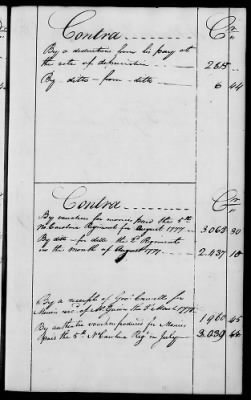 Contra Cr
By a deduction from his pay at
the rate of depreciation 265
By ditto from ditto 6 44
Contra Cr
By vouchers for monies paid the 5th
N Carolina Regiment for August 1777 3.065 30
By ditto for ditto the 2d Regiments
in the month of August 1777 2.437 18
By a receipt of Govr Caswell for
Monies recd of Mr 1778 1960 45
By authentic vouchers produced for Monies
paid the 5th N Carolina Regt in July 3.039 66